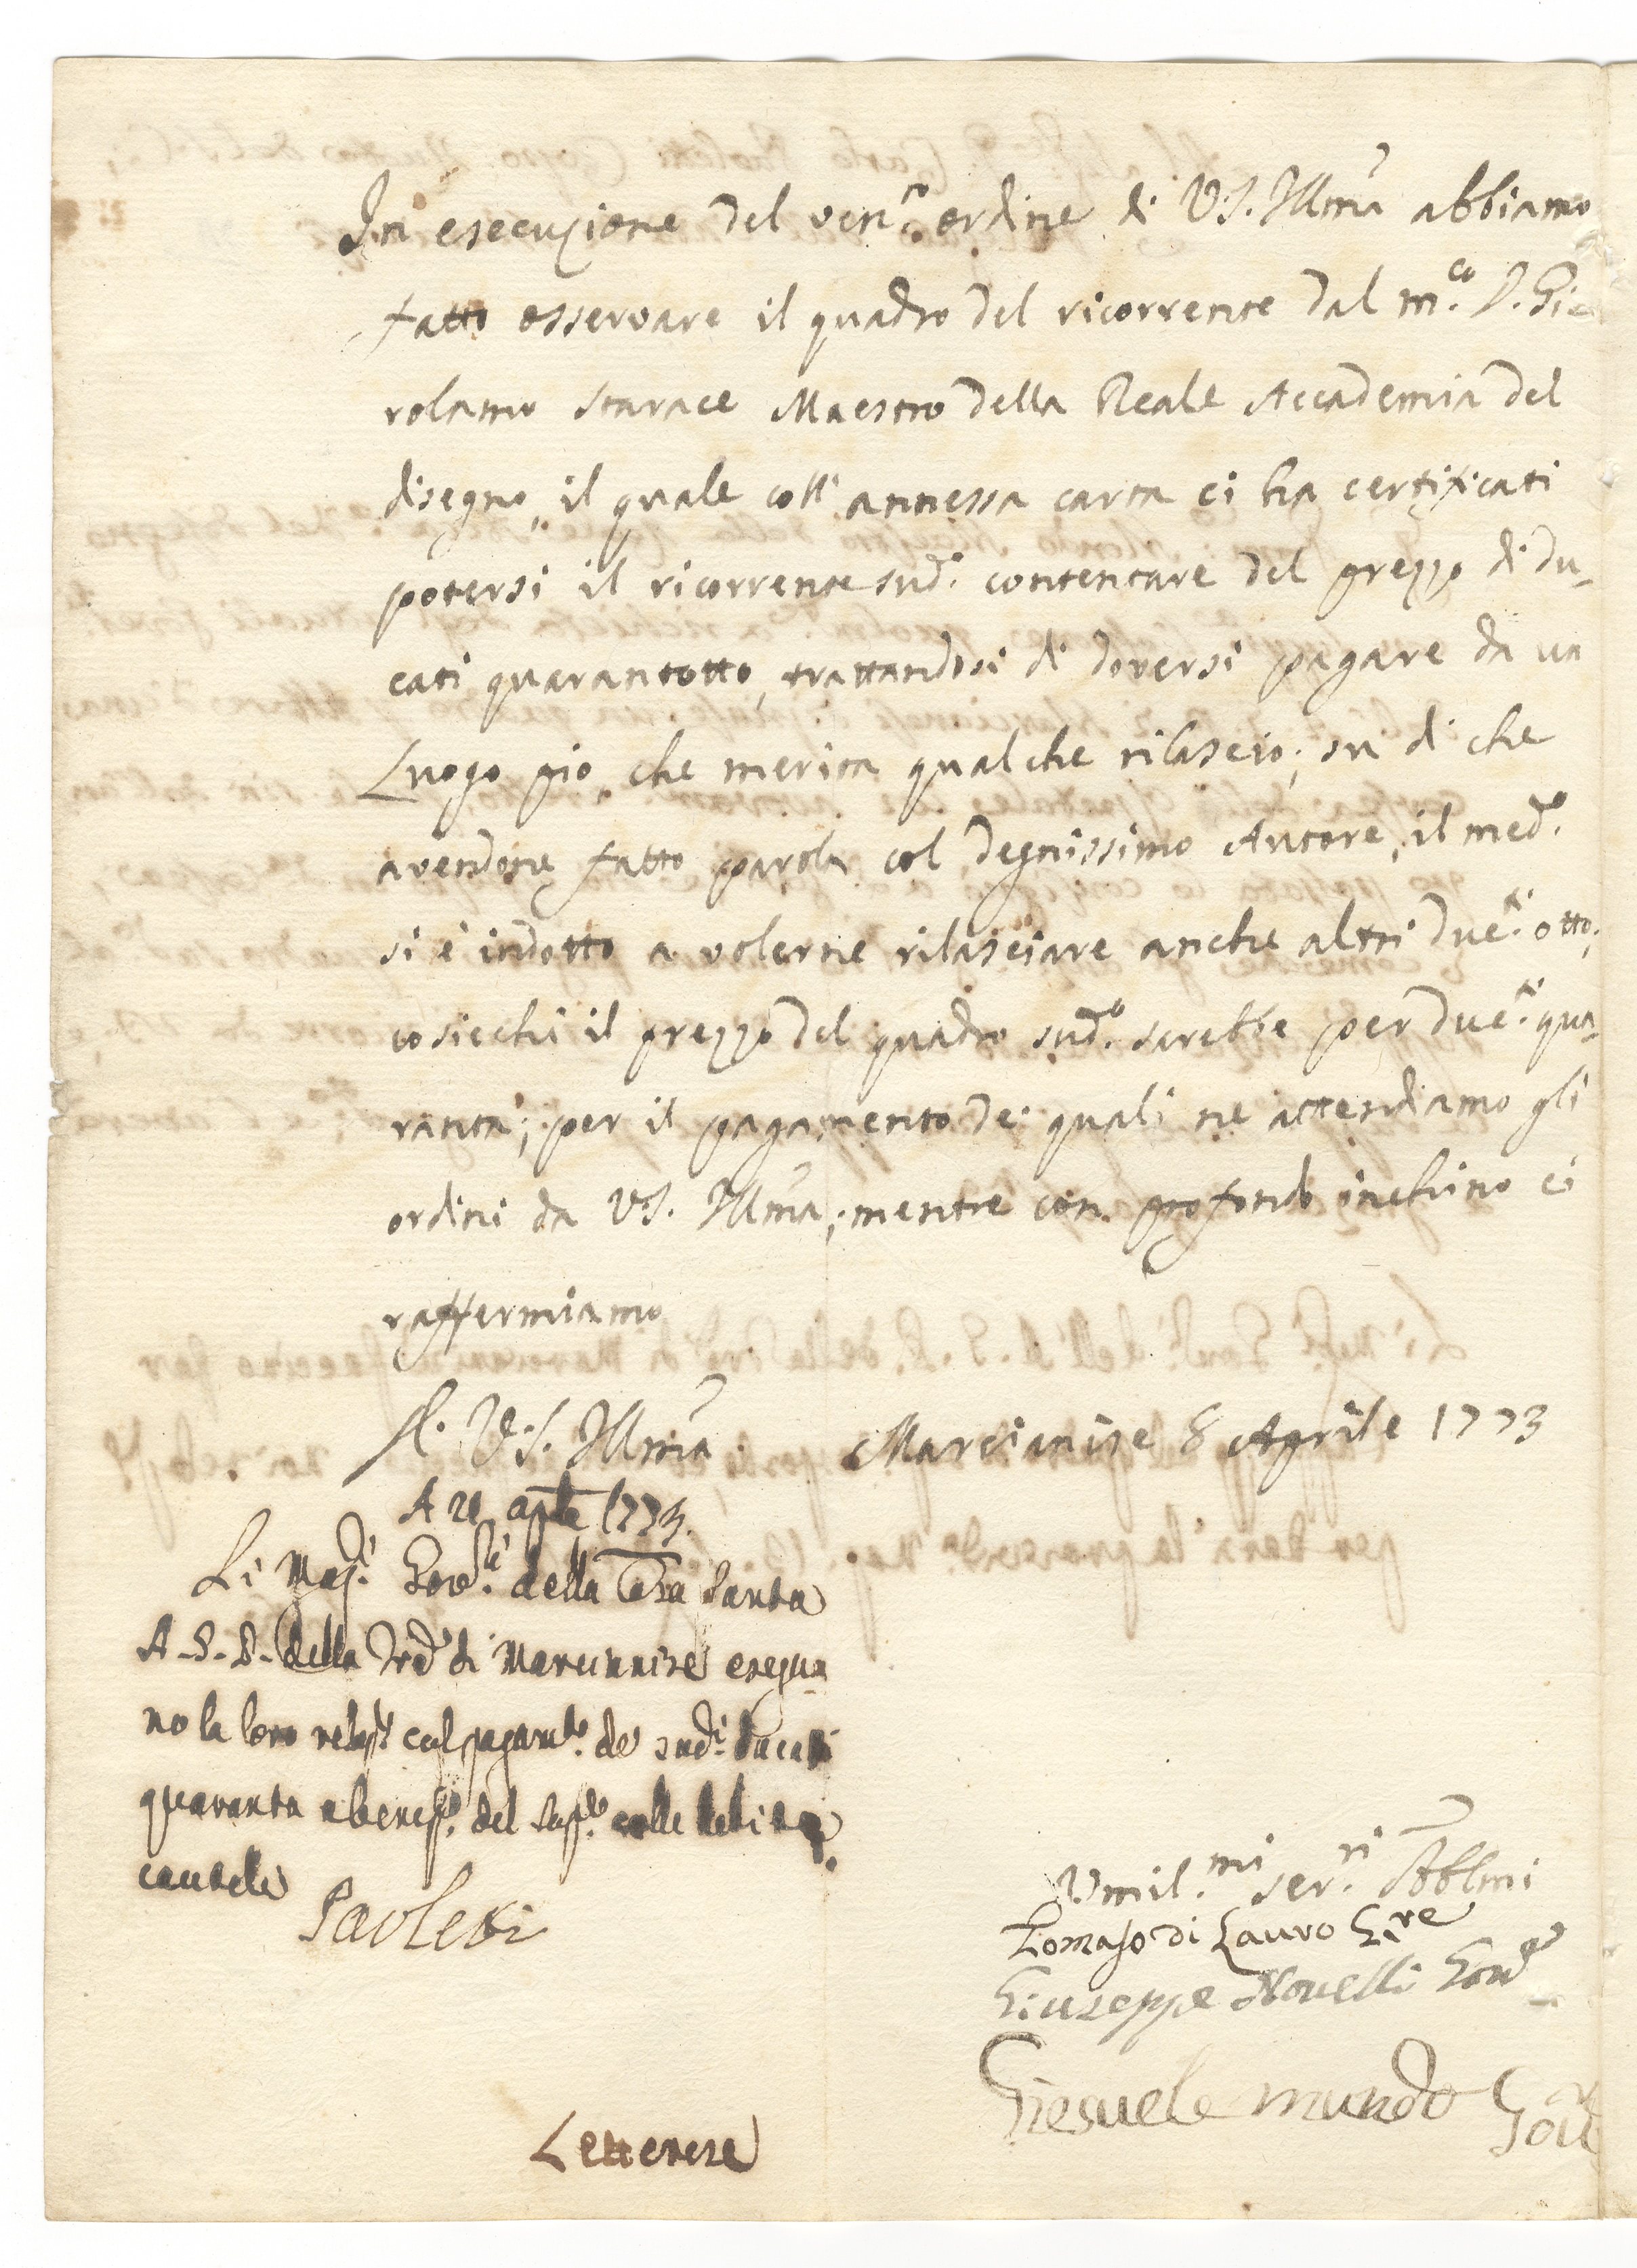 In esecuzione del ven.º ordine di V.S. Illma abbiamo
fatto osservare il quadro del ricorrente dal m.co D. Gi
rolamo Starace Maestro della Reale Accademia del
disegno, il quale coll' annessa carta ci ha certificati
potersi il ricorrente sud.º contentare del prezzo di du-
cati quarantotto, trattandosi di doversi pagare da un
Luogo pio, che merita qualche rilascio; su di che
avendone fatto parola col degnissimo Autore, il med.º
si è indotto a volerne rilasciare anche altri duc.ti otto;
cosicchè il prezzo del quadro sud.º sarebbe per duc.ti qua-
ranta; per il pagamento de' quali ne attendiamo gli
ordini da V.S. Illma; mentre con profondo inchino ci
raffermiamo
A. V.S. Illma. Marcianise 8 Aprile 1773
A 21 aple 1773.
Li Mag.ci Gov.ri della Casa Santa
A.G.P. della Trã di Marcianise esegua
no la loro relaz.e col pagam.to de sud.i ducati
quaranta a benef.º del sup.te colle debite
cautele
Paoletti
Umil.mi ser.ri Obblmi
Tomaso di Lauro G.re
Giuseppe Novelli Gov.e
Giesuele mundo Gov
Letterese